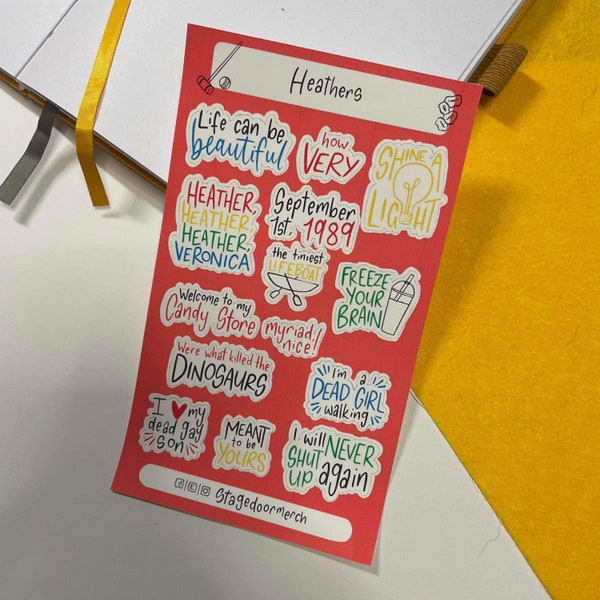 Heathers
Life can be
beautiful
how
VERY
SHINE A
LIGHT
HEATHER,
HEATHER,
HEATHER,
VERONICA
September
1st, 1989
the tiniest
LIFEBOAT
FREEZE
YOUR
BRAIN
Welcome to my
Candy Store
myriad!
nice!
Were what killed the
DINOSAURS
I'm a
DEAD GIRL
walking
I my
dead gay
son
MEANT
to be
YOURS
I will NEVER
SHUT
UP again
Stagedoormerch